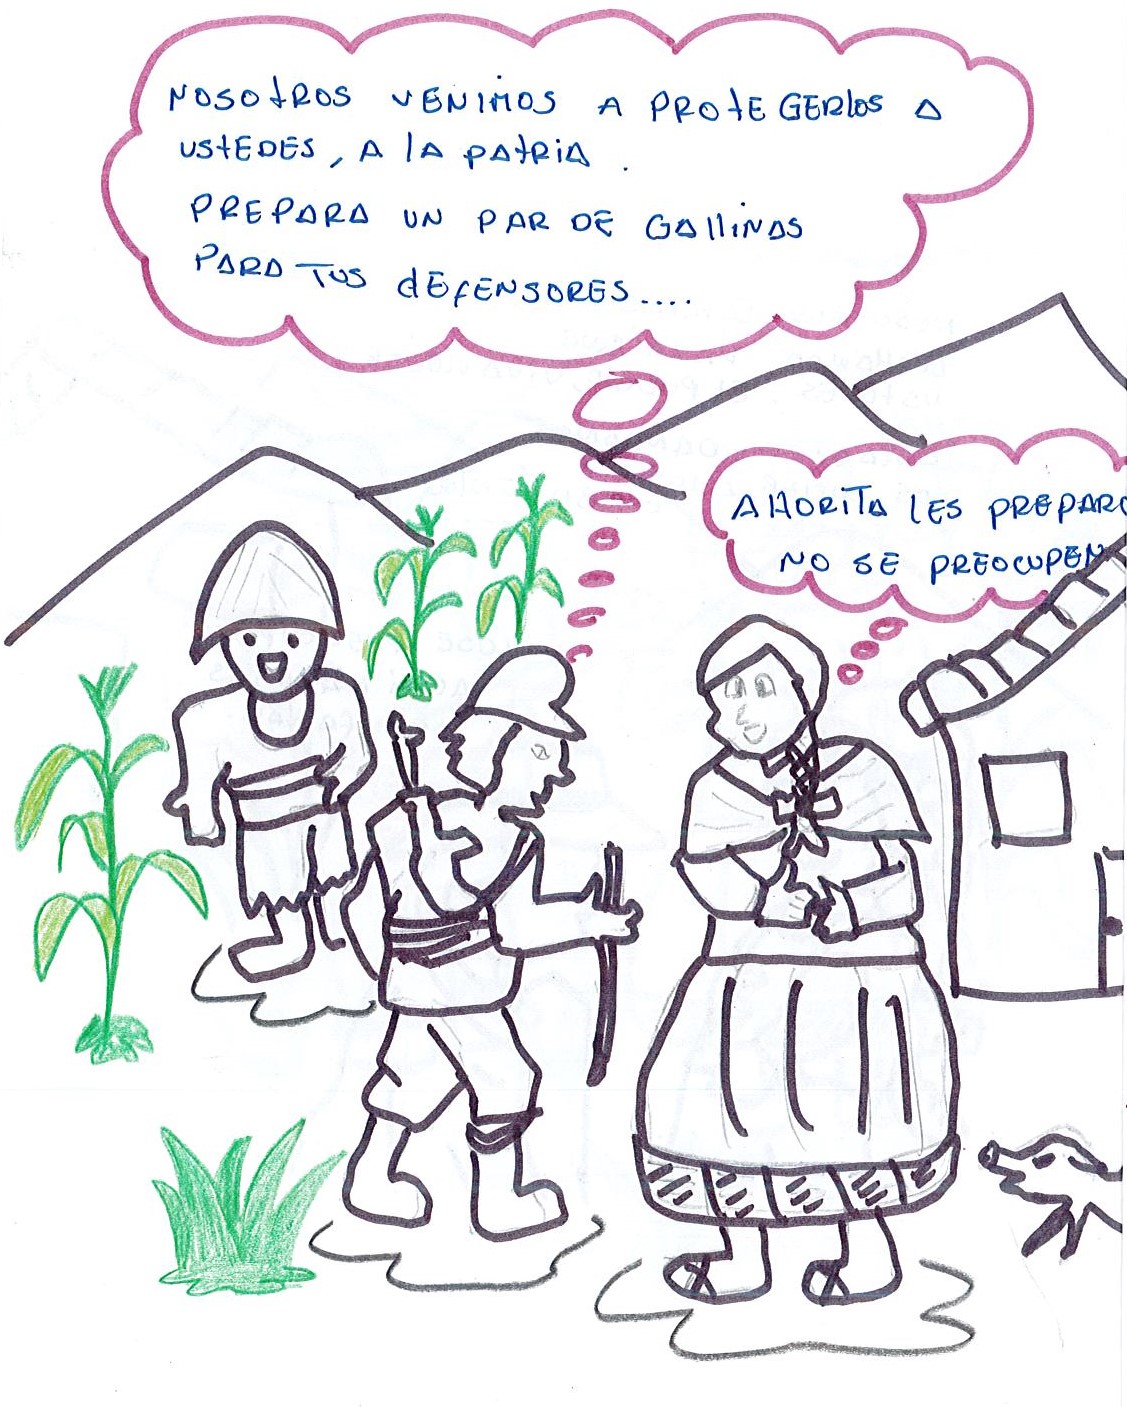 NOSOTROS VENIMOS A PROTEGERLOS A
USTEDES, A LA PATRIA.
PREPARA UN PAR DE GALLINAS
PARA TUS DEFENSORES....
AHORITA LES PREPARO
NO SE PREOCUPEN